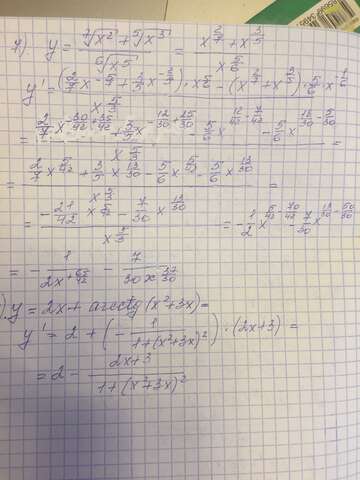 7). y = (⁷√x² + ⁵√x³) / ⁶√x⁵ = (x^(2/7) + x^(3/5)) / x^(5/6)
y' = ((2/7 x^(-5/7) + 3/5 x^(-2/5)) · x^(5/6) - (x^(2/7) + x^(3/5)) · 5/6 x^(-1/6)) / x^(5/3)
= (2/7 x^(-30/42 + 35/42) + 3/5 x^(-12/30 + 25/30) - 5/6 x^(12/42 - 7/42) - 5/6 x^(18/30 - 5/30)) / x^(5/3) =
= (2/7 x^(5/42) + 3/5 x^(13/30) - 5/6 x^(5/42) - 5/6 x^(13/30)) / x^(5/3) =
= (-21/42 x^(5/42) - 7/30 x^(13/30)) / x^(5/3) = -1/2 x^(5/42 - 70/42) - 7/30 x^(13/30 - 50/30)
= - 1 / (2x^(+65/42)) - 7 / (30x^(37/30))
). y = 2x + arcctg(x²+3x) =
y' = 2 + (- 1 / (1+(x²+3x)²)) · (2x+3) =
= 2 - (2x+3) / (1+(x²+3x)²)